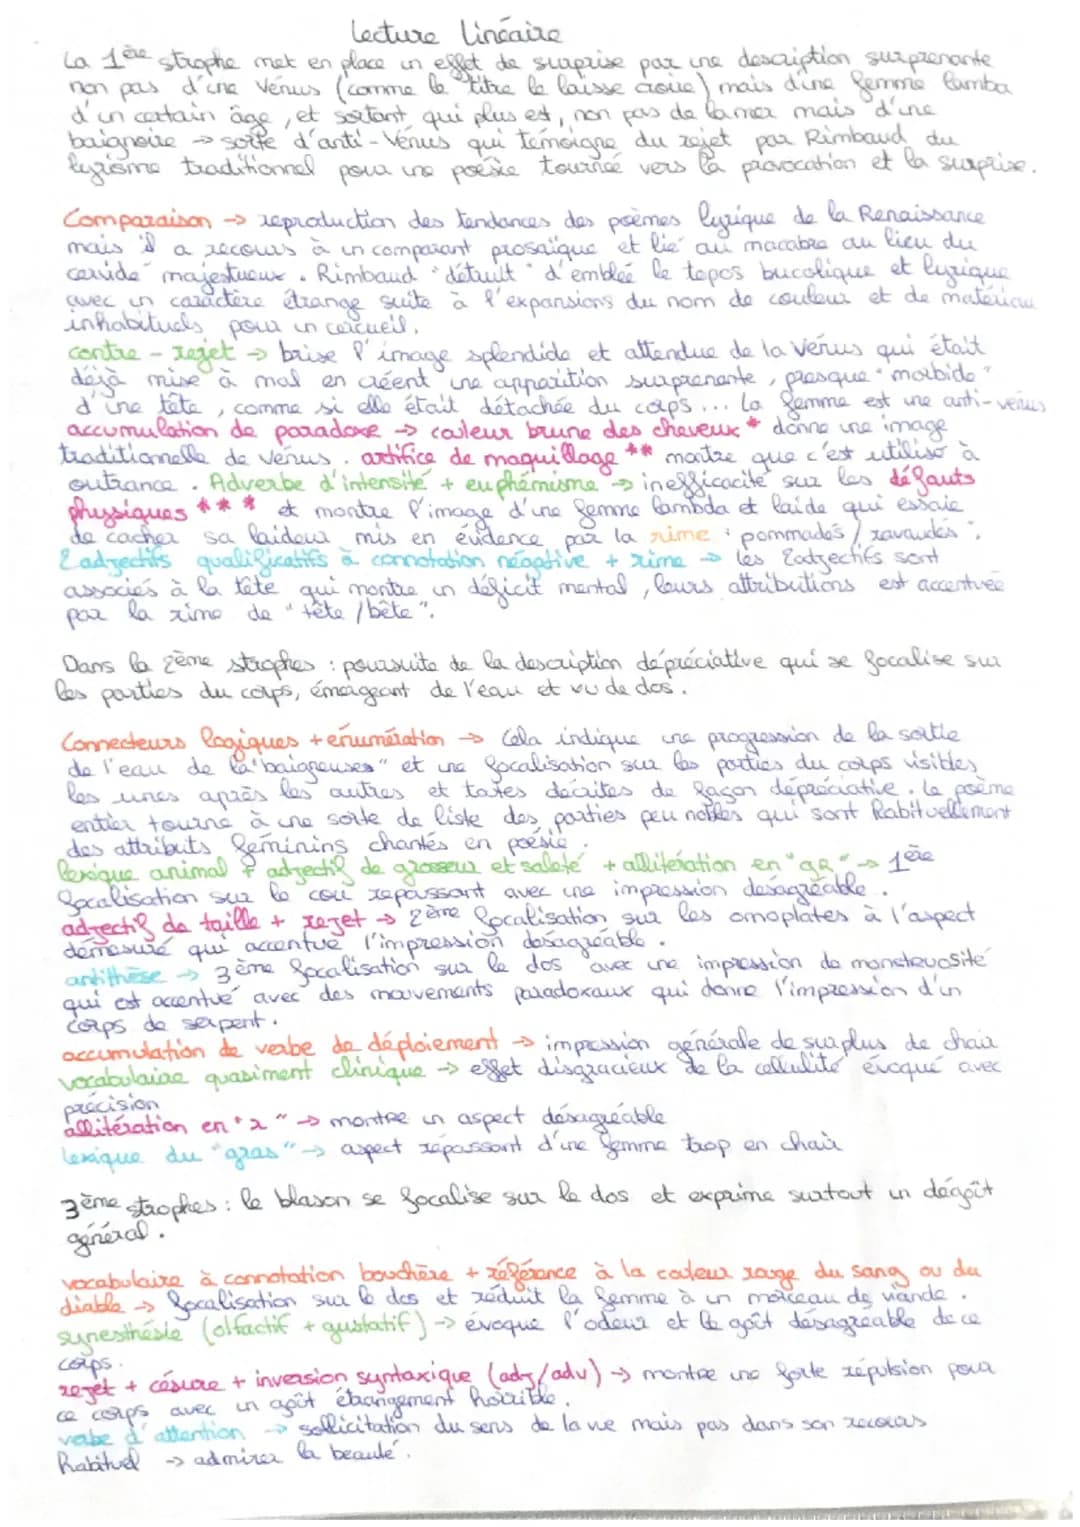 Lecture Linéaire
La 1ère strophe met en place un effet de surprise par une description surprenante
non pas d'une Vénus (comme le titre le laisse croire) mais d'une femme lamba
d'un certain âge, et sortant, qui plus est, non pas de la mer mais d'une
baignoire → sorte d'anti-Vénus qui témoigne du rejet par Rimbaud du
lyrisme traditionnel pour une poésie tournée vers la provocation et la surprise.
Comparaison → reproduction des tendances des poèmes lyrique de la Renaissance
mais il a recours à un comparant prosaïque et lié au macabre au lieu du
majestueux. Rimbaud "détruit" d'emblée le topos bucolique et lyrique
avec un caractère étrange suite à l'expansions du nom de couleur et de matériau
inhabituels pour un cercueil.
contre-rejet → brise l'image splendide et attendue de la Vénus qui était
déjà mise à mal en créent une apparition surprenante, presque "morbide"
d'une tête, comme si elle était détachée du corps... La femme est une anti-vénus
accumulation de paradoxe → couleur brune des cheveux * donne une image
traditionnelle de Vénus. artifice de maquillage ** maitre que c'est utilisé à
outrance. Adverbe d'intensité + euphémisme → inefficacité sur les défauts
physiques *** et montre l'image d'une femme lambda et laide qui essaie
de cacher sa laideur mis en évidence par la rime "pommadés/ravaudés".
2 adjectifs qualificatifs à connotation négative + rime → les 2 adjectifs sont
associés à la tête qui montre un déficit mental, leurs attributions est accentuée
par la rime de "tête/bête".
Dans la 2ème strophes : poursuite de la description dépréciative qui se focalise sur
les parties du corps, émergeant de l'eau et vu de dos.
Connecteurs logiques + énumération → Cela indique une progression de la sortie
de l'eau de la "baigneuses" et une focalisation sur les parties du corps visibles
les unes après les autres et toutes décrites de façon dépréciative. Le poème
entier tourne à une sorte de liste des parties peu nobles qui sont habituellement
des attributs féminins chantés en poésie.
lexique animal + adjectif de grosseur et saleté + allitération en "gR" → 1ère
focalisation sur le cou repoussant avec une impression désagréable.
adjectif de taille + rejet → 2ème focalisation sur les omoplates à l'aspect
démesuré qui accentue l'impression désagréable.
antithèse → 3ème focalisation sur le dos avec une impression de monstruosité
qui est accentué avec des mouvements paradoxaux qui donne l'impression d'un
corps de serpent.
accumulation de verbe de déploiement → impression générale de surplus de chair
vocabulaire quasiment clinique → effet disgracieux de la cellulité évoqué avec
précision
allitération en "r" → montre un aspect désagréable
lexique du "gras" → aspect repoussant d'une femme trop en chair
3ème strophes : le blason se focalise sur le dos et exprime surtout un dégoût
général.
vocabulaire à connotation bouchère + référence à la couleur rouge du sang ou du
diable → focalisation sur le dos et réduit la femme à un morceau de viande.
synesthésie (olfactif + gustatif) → évoque l'odeur et le goût désagréable de ce
corps.
rejet + césure + inversion syntaxique (adj/adv) → montre une forte répulsion pour
ce corps avec un goût étrangement horrible.
verbe d'attention → sollicitation du sens de la vue mais pas dans son recours
habituel → admirer la beauté.